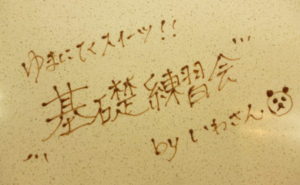 ゆまにてくスイーツ!!
基礎練習会
by いわさん